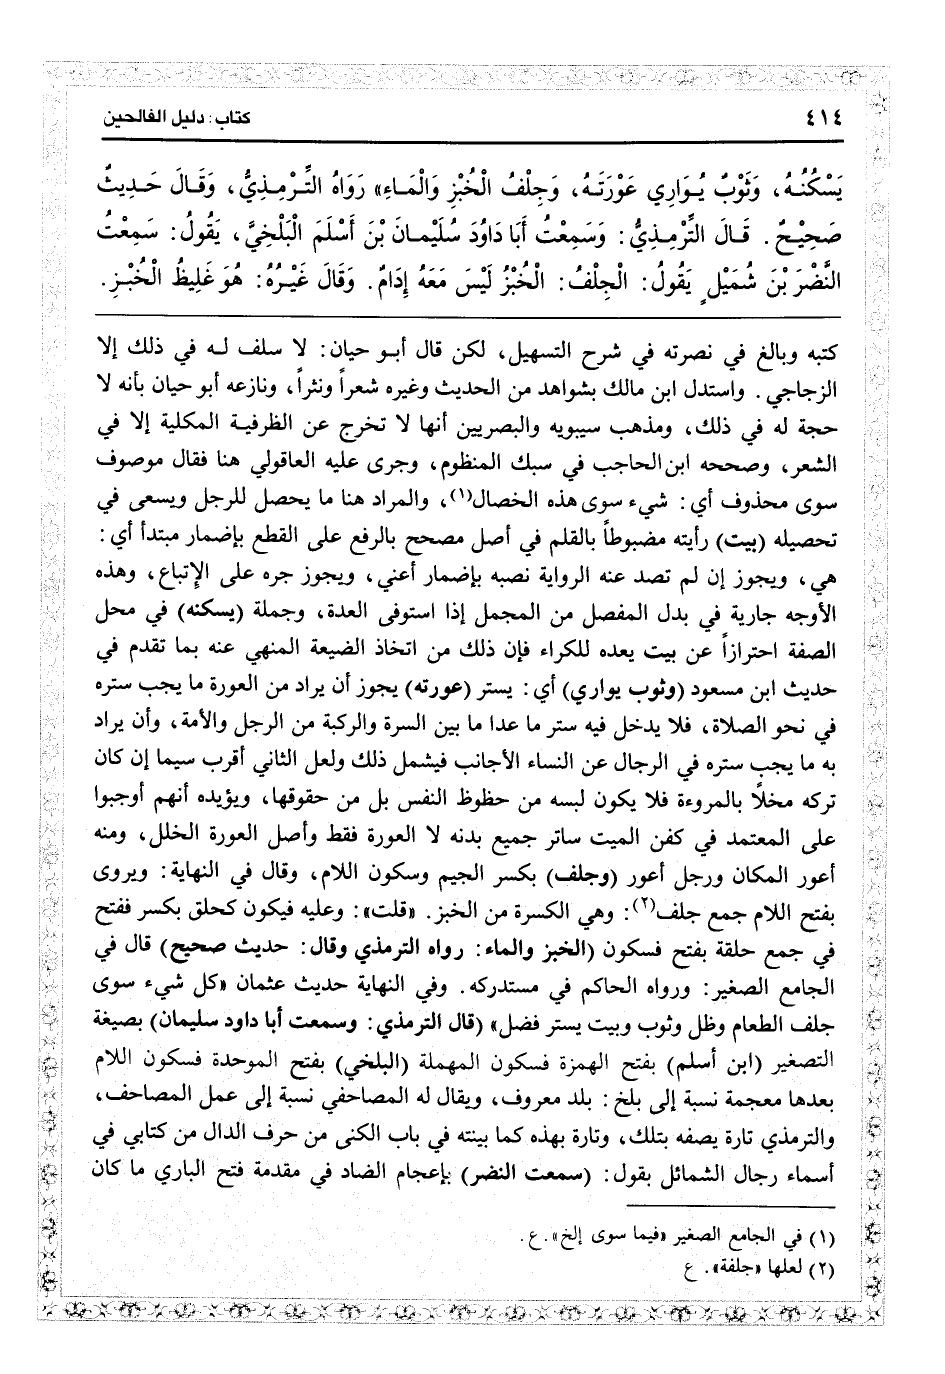 ٤١٤
كتاب: دليل الفالحين
يَسْكُنُـهُ، وَثَوْبٌ يُـوَارِي عَوْرَتَـهُ، وَجِلْفُ الْخُبْزِ وَالْمَـاءِ» رَوَاهُ التِّـرْمِـذِيُّ، وَقَـالَ حَـدِيثٌ
صَحِيْـحٌ. قَـالَ التِّرْمِذِيُّ: وَسَمِعْتُ أَبَا دَاوُدَ سُلَيْمـانَ بْنَ أَسْلَمَ الْبَلْخِيَّ، يَقُولُ: سَمِعْتُ
النَّضْرَ بْنَ شُمَيْلٍ يَقُولُ: الْجِلْفُ: الْخُبْزُ لَيْسَ مَعَهُ إِدَامٌ. وَقَالَ غَيْـرُهُ: هُوَ غَلِيظُ الْخُبْـزِ.
كتبه وبالغ في نصرته في شرح التسهيل، لكن قال أبـو حيان: لا سلف لـه في ذلك إلا
الزجاجي. واستدل ابن مالك بشواهد من الحديث وغيره شعراً ونثراً، ونازعه أبو حيان بأنه لا
حجة له في ذلك، ومذهب سيبويه والبصريين أنها لا تخرج عن الظرفيـة المكلية إلا في
الشعر، وصححه ابن الحاجب في سبك المنظوم، وجرى عليه العاقولي هنا فقال موصوف
سوى محذوف أي: شيء سوى هذه الخصال(١)، والمراد هنا ما يحصل للرجل ويسعى في
تحصيله (بيت) رأيته مضبوطاً بالقلم في أصل مصحح بالرفع على القطع بإضمار مبتدأ أي:
هي، ويجوز إن لم تصد عنه الرواية نصبه بإضمار أعني، ويجوز جره على الإتباع، وهذه
الأوجه جارية في بدل المفصل من المجمل إذا استوفى العدة، وجملة (يسكنه) في محل
الصفة احترازاً عن بيت يعده للكراء فإن ذلك من اتخاذ الضيعة المنهي عنه بما تقدم في
حديث ابن مسعود (وثوب يواري) أي: يستر (عورته) يجوز أن يراد من العورة ما يجب ستره
في نحو الصلاة، فلا يدخل فيه ستر ما عدا ما بين السرة والركبة من الرجل والأمة، وأن يراد
به ما يجب ستره في الرجال عن النساء الأجانب فيشمل ذلك ولعل الثاني أقرب سيما إن كان
تركه مخلاً بالمروءة فلا يكون لبسه من حظوظ النفس بل من حقوقها، ويؤيده أنهم أوجبوا
على المعتمد في كفن الميت ساتر جميع بدنه لا العورة فقط وأصل العورة الخلل، ومنه
أعور المكان ورجل أعور (وجلف) بكسر الجيم وسكون اللام، وقال في النهاية: ويروى
بفتح اللام جمع جلف(٢): وهي الكسرة من الخبز. «قلت»: وعليه فيكون كحلق بكسر ففتح
في جمع حلقة بفتح فسكون (الخبز والماء: رواه الترمذي وقال: حديث صحيح) قال في
الجامع الصغير: ورواه الحاكم في مستدركه. وفي النهاية حديث عثمان «كل شيء سوى
جلف الطعام وظل وثوب وبيت يستر فضل» (قال الترمذي: وسمعت أبا داود سليمان) بصيغة
التصغير (ابن أسلم) بفتح الهمزة فسكون المهملة (البلخي) بفتح الموحدة فسكون اللام
بعدها معجمة نسبة إلى بلخ: بلد معروف، ويقال له المصاحفي نسبة إلى عمل المصاحف،
والترمذي تارة يصفه بتلك، وتارة بهذه كما بينته في باب الكنى من حرف الدال من كتابي في
أسماء رجال الشمائل بقول: (سمعت النضر) بإعجام الضاد في مقدمة فتح الباري ما كان
(١) في الجامع الصغير «فيما سوى إلخ». ع.
(٢) لعلها «جلفة». ع